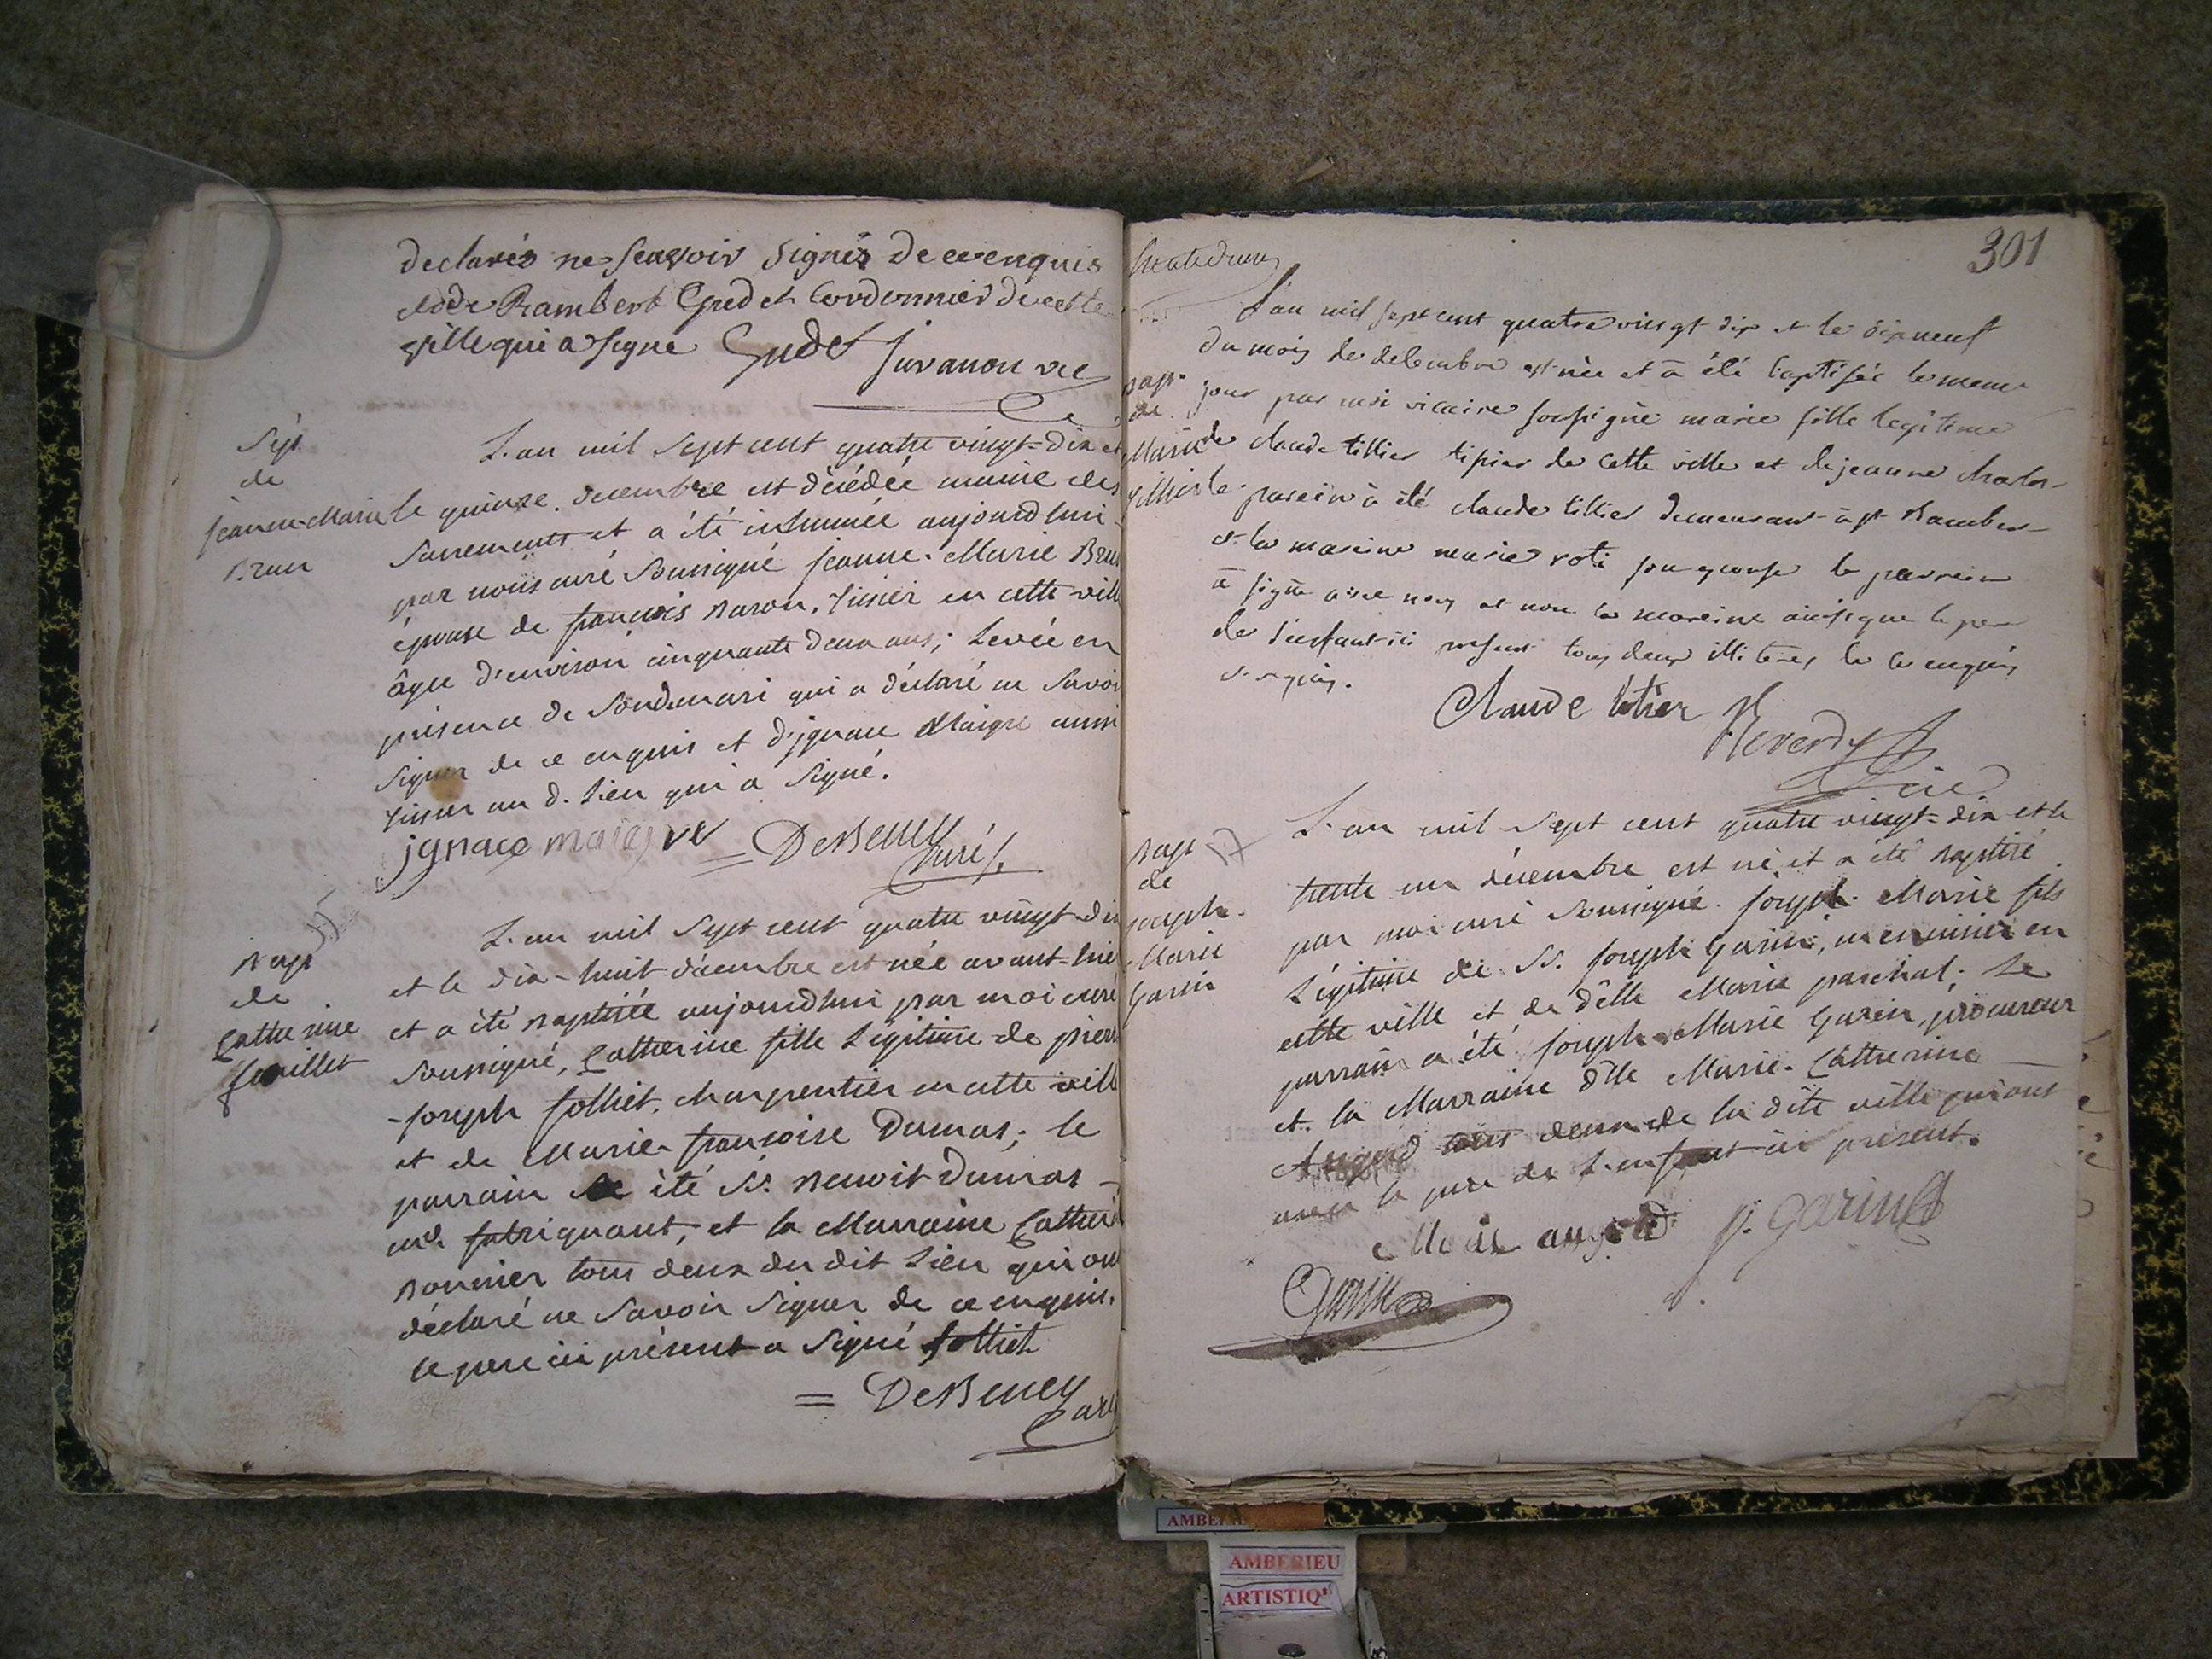 declarés ne sçavoir signés de ce enquis
et de Rambert Gudet Cordonnier de cette
ville qui a signé Gudet Juvanon vic
Sép.
de
jeanne-Marie
Brun
L'an mil sept cent quatre vingt-dix et
le quinze decembre est décédée munie des
sacrements et a été inhumée aujourdhui
par nous curé soussigné jeanne-Marie Brun
épouse de françois Baron, tissier en cette ville
âgée d'environ cinquante deux ans; Levée en
présence de son d. mari qui a déclaré ne savoir
signer de ce enquis et d'ignace Maigre aussi
tissier au d. Lieu qui a signé.
jgnace maigre = DeBeney
Curé
Bapt
de
Catherine
follliet
L'an mil sept cent quatre vingt-dix
et le dix-huit décembre est née avant-hier
et a été baptisée aujourdhui par moi curé
soussigné, Catherine fille Légitime de pierre
-joseph folliet, charpentier en cette ville
et de Marie-françoise Dumas; le
parrain a été Sr. Benoit Dumas
md. fabriquant, et la Marraine Catherine
Bonnier tous deux du dit Lieu qui ont
déclaré ne savoir signer de ce enquis.
le pere ici présent a signé folliet
= DeBeney
Curé
301
Bapt
de
Marie
tillier
L'an mil sept cent quatre vingt dix et le dix neuf
du mois de decembre est née et a été baptisée le meme
jour par moi vicaire soussigné marie fille legitime
de claude tillier tixier de cette ville et de jeanne
le parein a été claude tillier demeurant à st Rambert
et la mareine marie roti son epouse le parrein
a signé avec nous et non la mareine ainsi que le pere
de l'enfant ici present tous deux illiteres de ce enquis
et requis.
Claude titier Reverdy
Vic
Bapt
de
joseph-
Marie
Garin
17
L'an mil sept cent quatre vingt-dix et le
trente un décembre est né et a été baptisé
par moi curé soussigné joseph-Marie fils
Légitime de Sr. joseph Garin, menuisier en
cette ville et de délle Marie paschal; Le
parrain a été joseph-Marie Garin, procureur
et la Marraine dlle Marie-Catherine
Augerd tous deux de la dite ville qui ont
avec le pere de L'enfant ici présent.
augerd j. Garin
Garin
AMBERIEU
ARTISTIQ